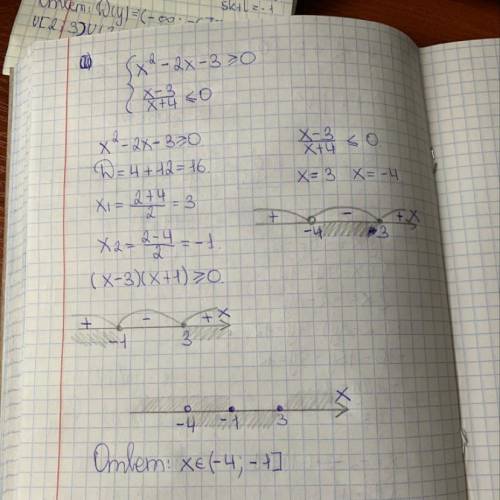 Ответ: D(y)=(-∞;
1) { x² - 2x - 3 ≥ 0
x-3/x+4 ≤ 0
x² - 2x - 3 ≥ 0
D = 4 + 12 = 16.
x1 = 2+4/2 = 3
x2 = 2-4/2 = -1.
(x-3)(x+1) ≥ 0.
+ - + x
-1 3
x-3/x+4 ≤ 0
x = 3 x = -4
+ - + x
-4 3
x
-4 -1 3
Ответ: x∈(-4; -1]